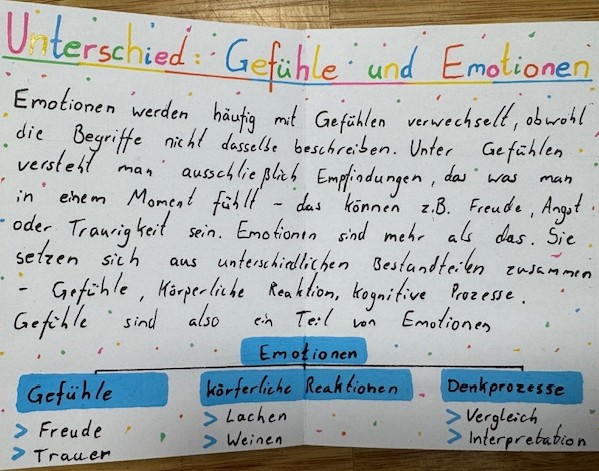 Unterschied: Gefühle und Emotionen
Emotionen werden häufig mit Gefühlen verwechselt, obwohl
die Begriffe nicht dasselbe beschreiben. Unter Gefühlen
versteht man ausschließlich Empfindungen, das was man
in einem Moment fühlt - das können z.B. Freude, Angst
oder Traurigkeit sein. Emotionen sind mehr als das. Sie
setzen sich aus unterschiedlichen Bestandteilen zusammen
- Gefühle, Körperliche Reaktion, Kognitive Prozesse.
Gefühle sind also ein Teil von Emotionen
Emotionen
Gefühle
> Freude
> Trauer
körferliche Reaktionen
> Lachen
> Weinen
Denkprozesse
> Vergleich
> Interpretation